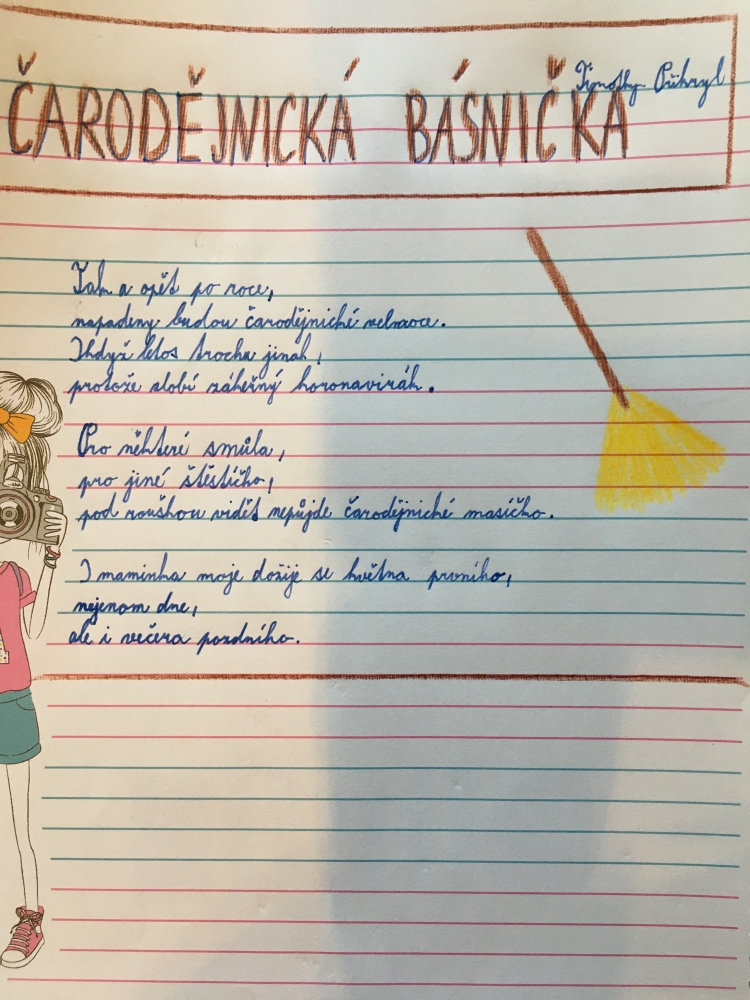 Timothy Přikryl
ČARODĚJNICKÁ BÁSNIČKA
Tak a opět po roce,
napadeny budou čarodějnické velmoce.
I když letos trochu jinak,
protože zlobí záheřný koronavirák.
Pro některé smůla,
pro jiné štěstíčko,
pod rouškou vidět nepůjde čarodějnické masíčko.
I maminka moje dožije se května prvního,
nejenom dne,
ale i večera pozdního.